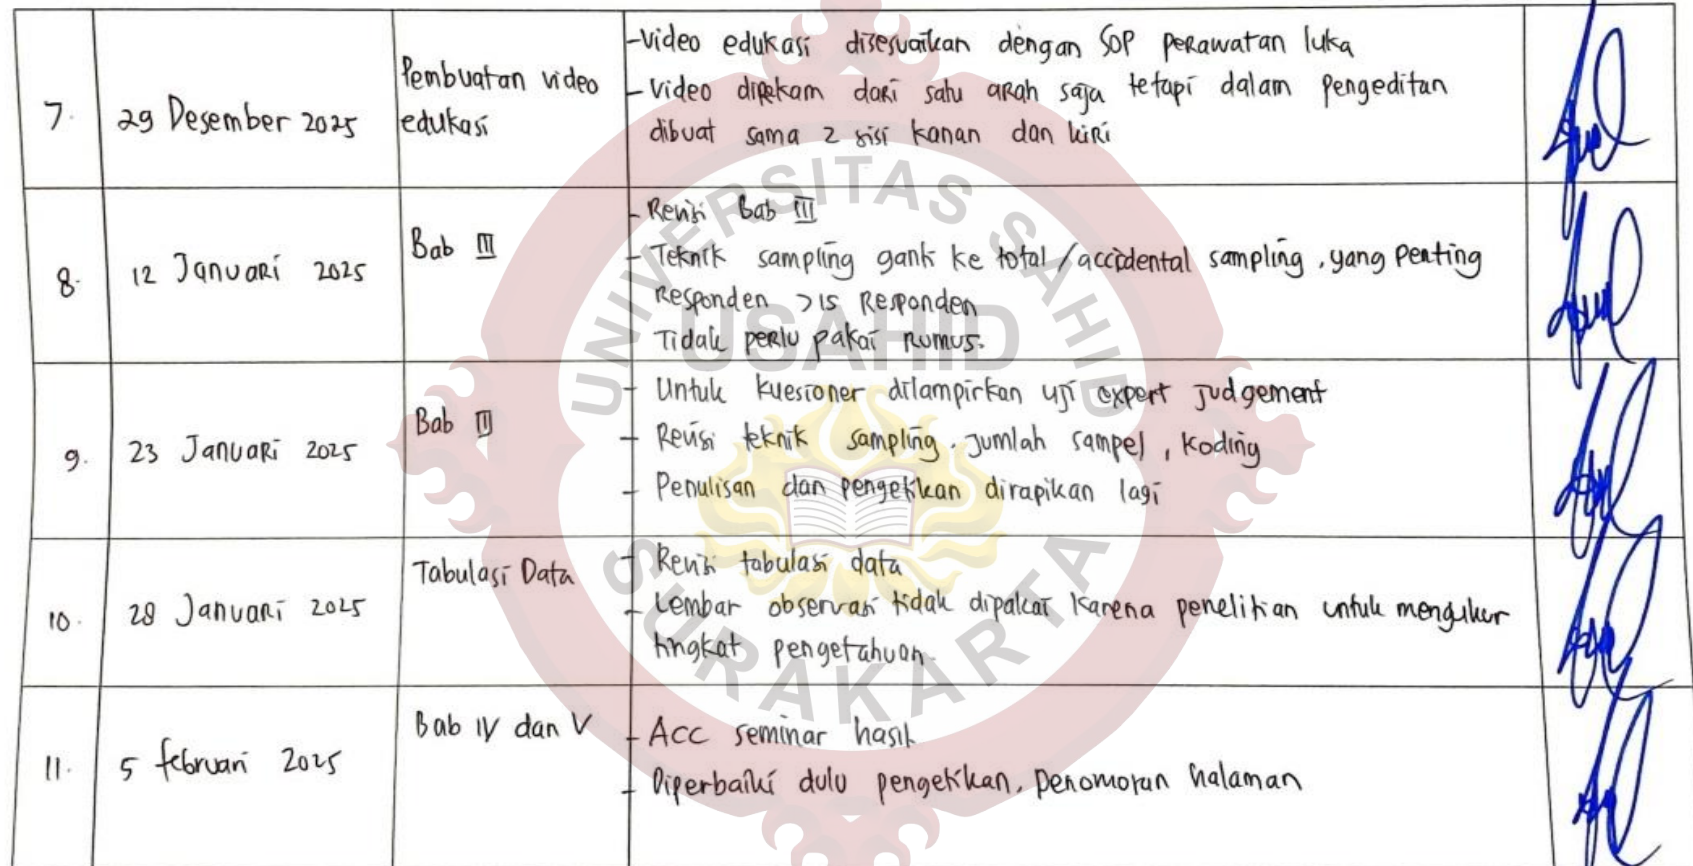 7. 29 Desember 2025 Pembuatan video edukasi
- Video edukasi disesuaikan dengan SOP perawatan luka
- Video direkam dari satu arah saja tetapi dalam pengeditan
dibuat sama 2 sisi kanan dan kiri
8. 12 Januari 2025 Bab III
- Revisi Bab III
- Teknik sampling ganti ke total / accidental sampling, yang penting
Responden > 15 Responden
Tidak perlu pakai rumus.
9. 23 Januari 2025 Bab III
- Untuk kuesioner dilampirkan uji expert judgement
- Revisi teknik sampling, jumlah sampel, koding
- Penulisan dan pengetikan dirapikan lagi
10. 28 Januari 2025 Tabulasi Data
- Revisi tabulasi data
- Lembar observasi tidak dipakai karena penelitian untuk mengukur
tingkat pengetahuan.
11. 5 februari 2025 Bab IV dan V
- Acc seminar hasil
- Diperbaiki dulu pengetikan, penomoran halaman
UNIVERSITAS SAHID
USAHID
SURAKARTA